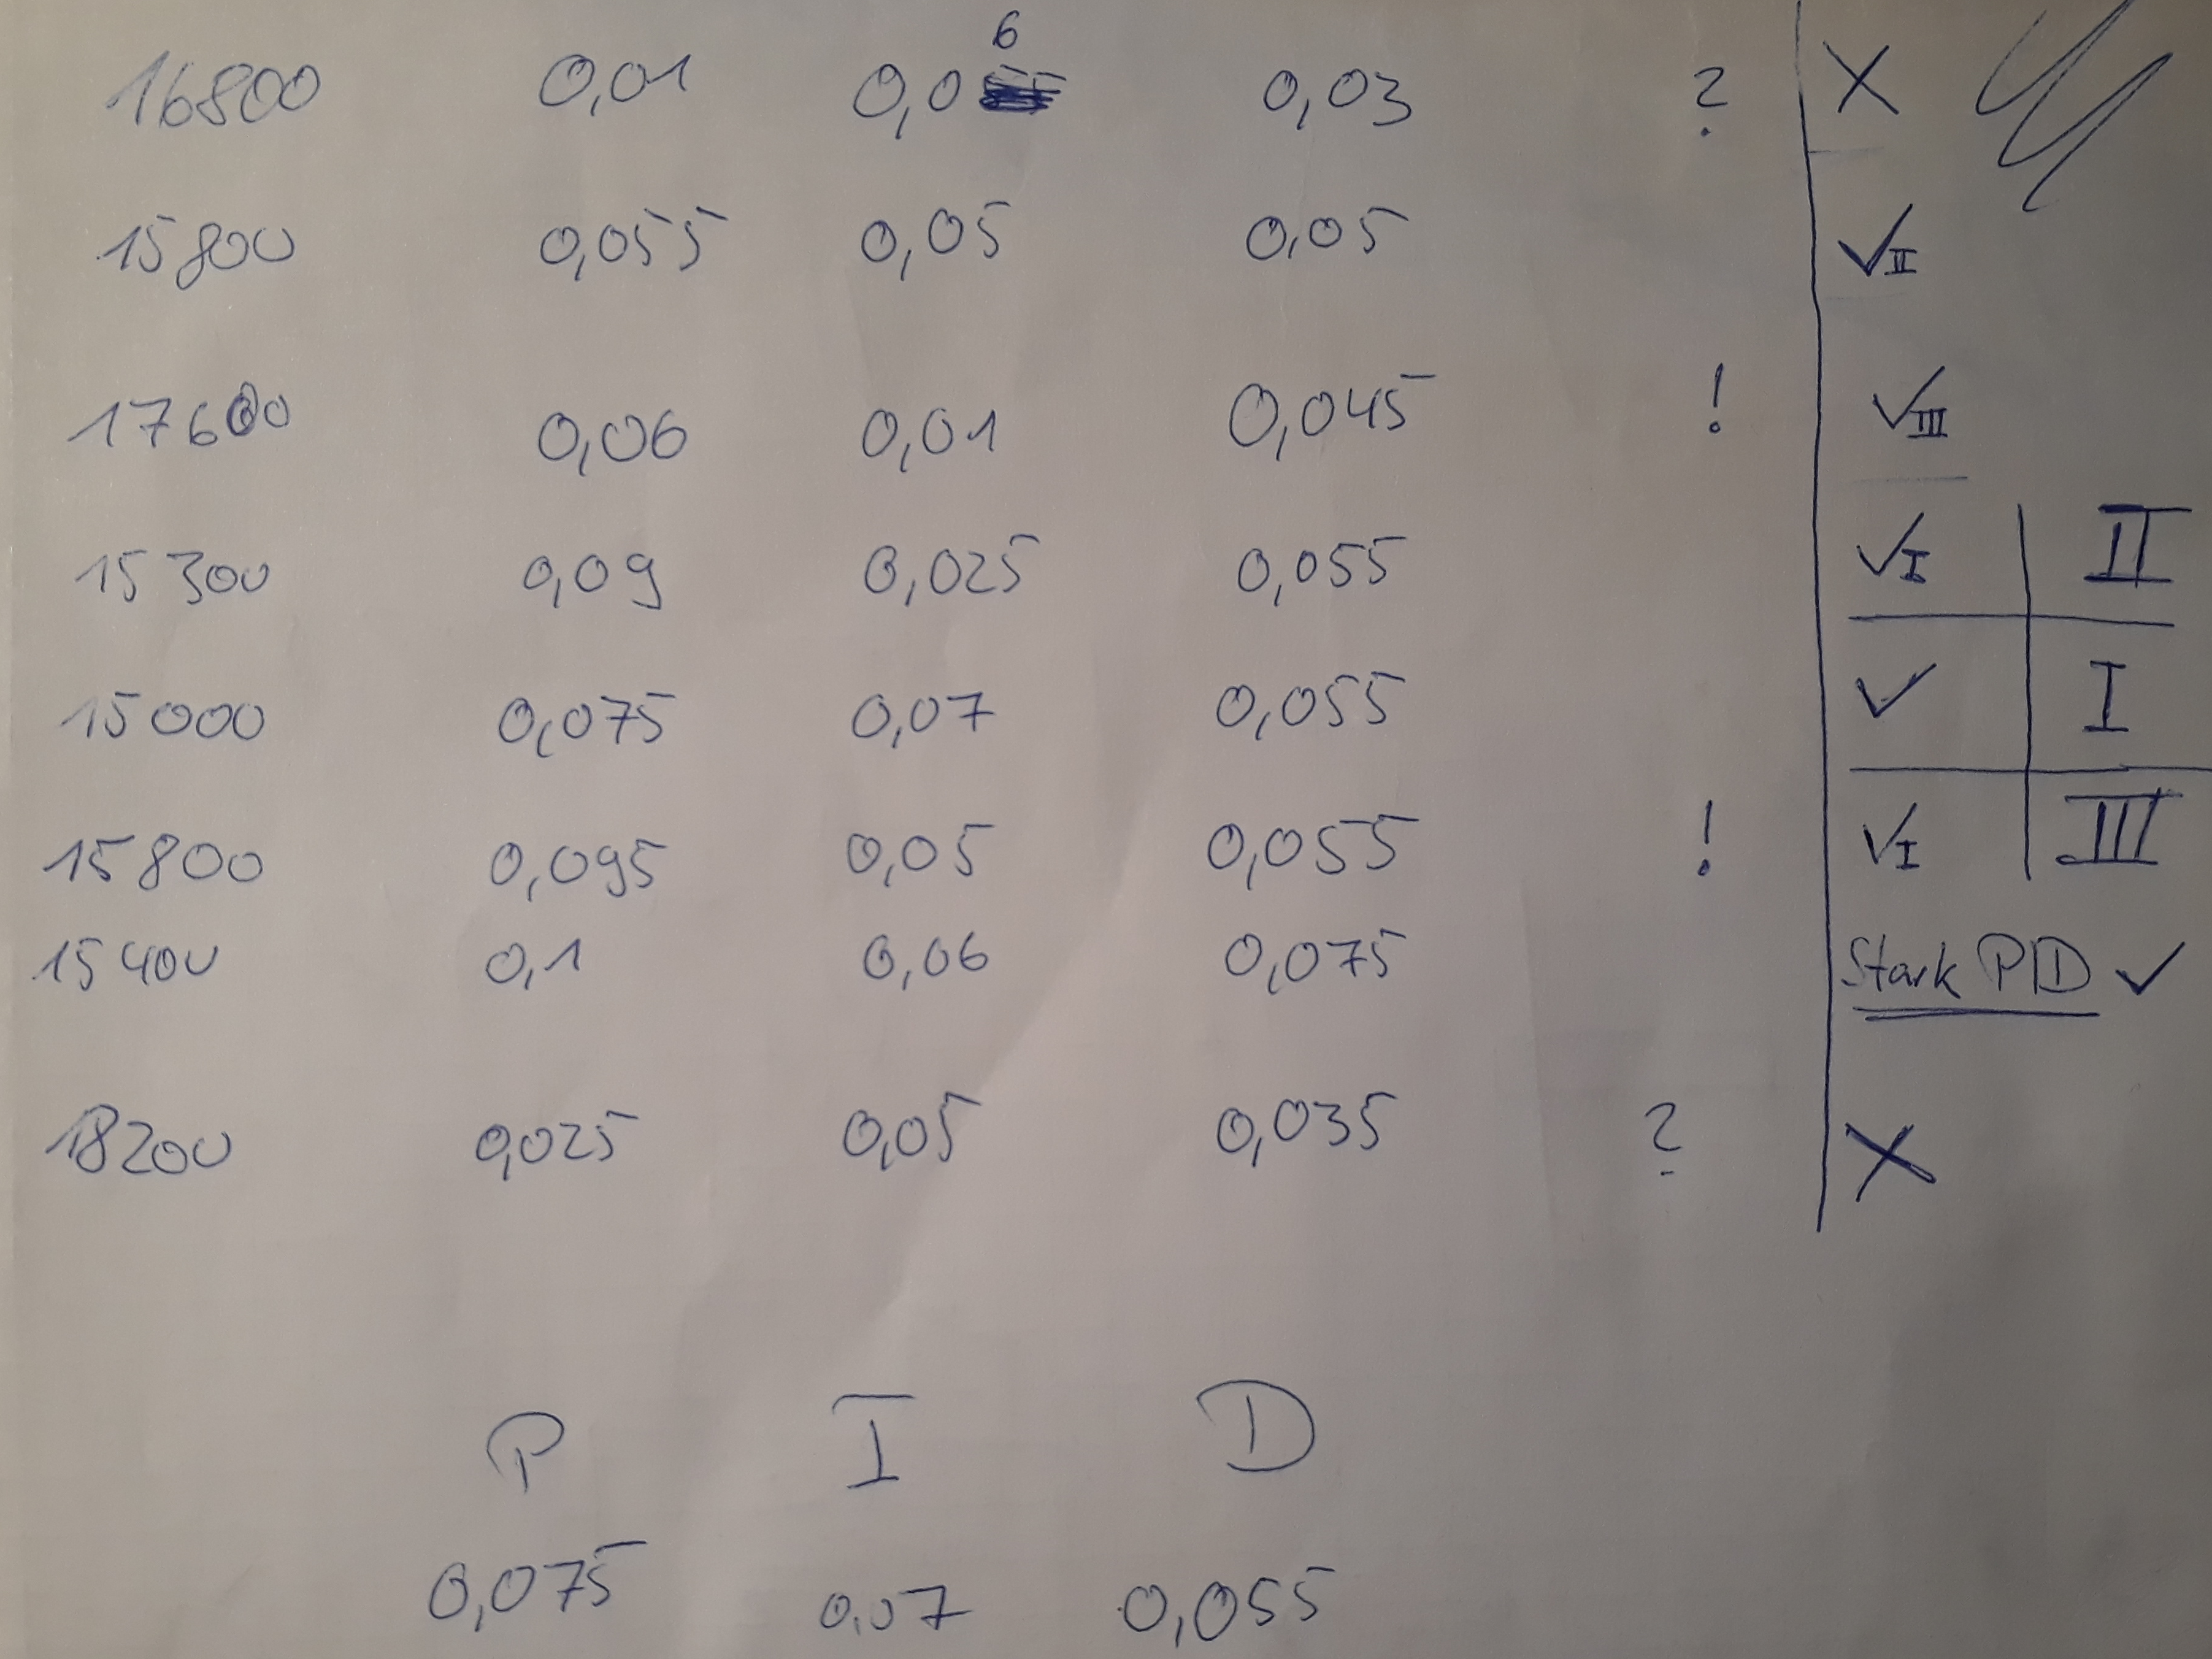 16800 0,01 0,06 0,03 ? X
15800 0,055 0,05 0,05 ✓II
17600 0,06 0,01 0,045 ! ✓III
15300 0,09 0,025 0,055 ✓I II
15000 0,075 0,07 0,055 ✓ I
15800 0,095 0,05 0,055 ! ✓I III
15400 0,1 0,06 0,075 Stark PID ✓
18200 0,025 0,05 0,035 ? X
P I D
0,075 0,07 0,055